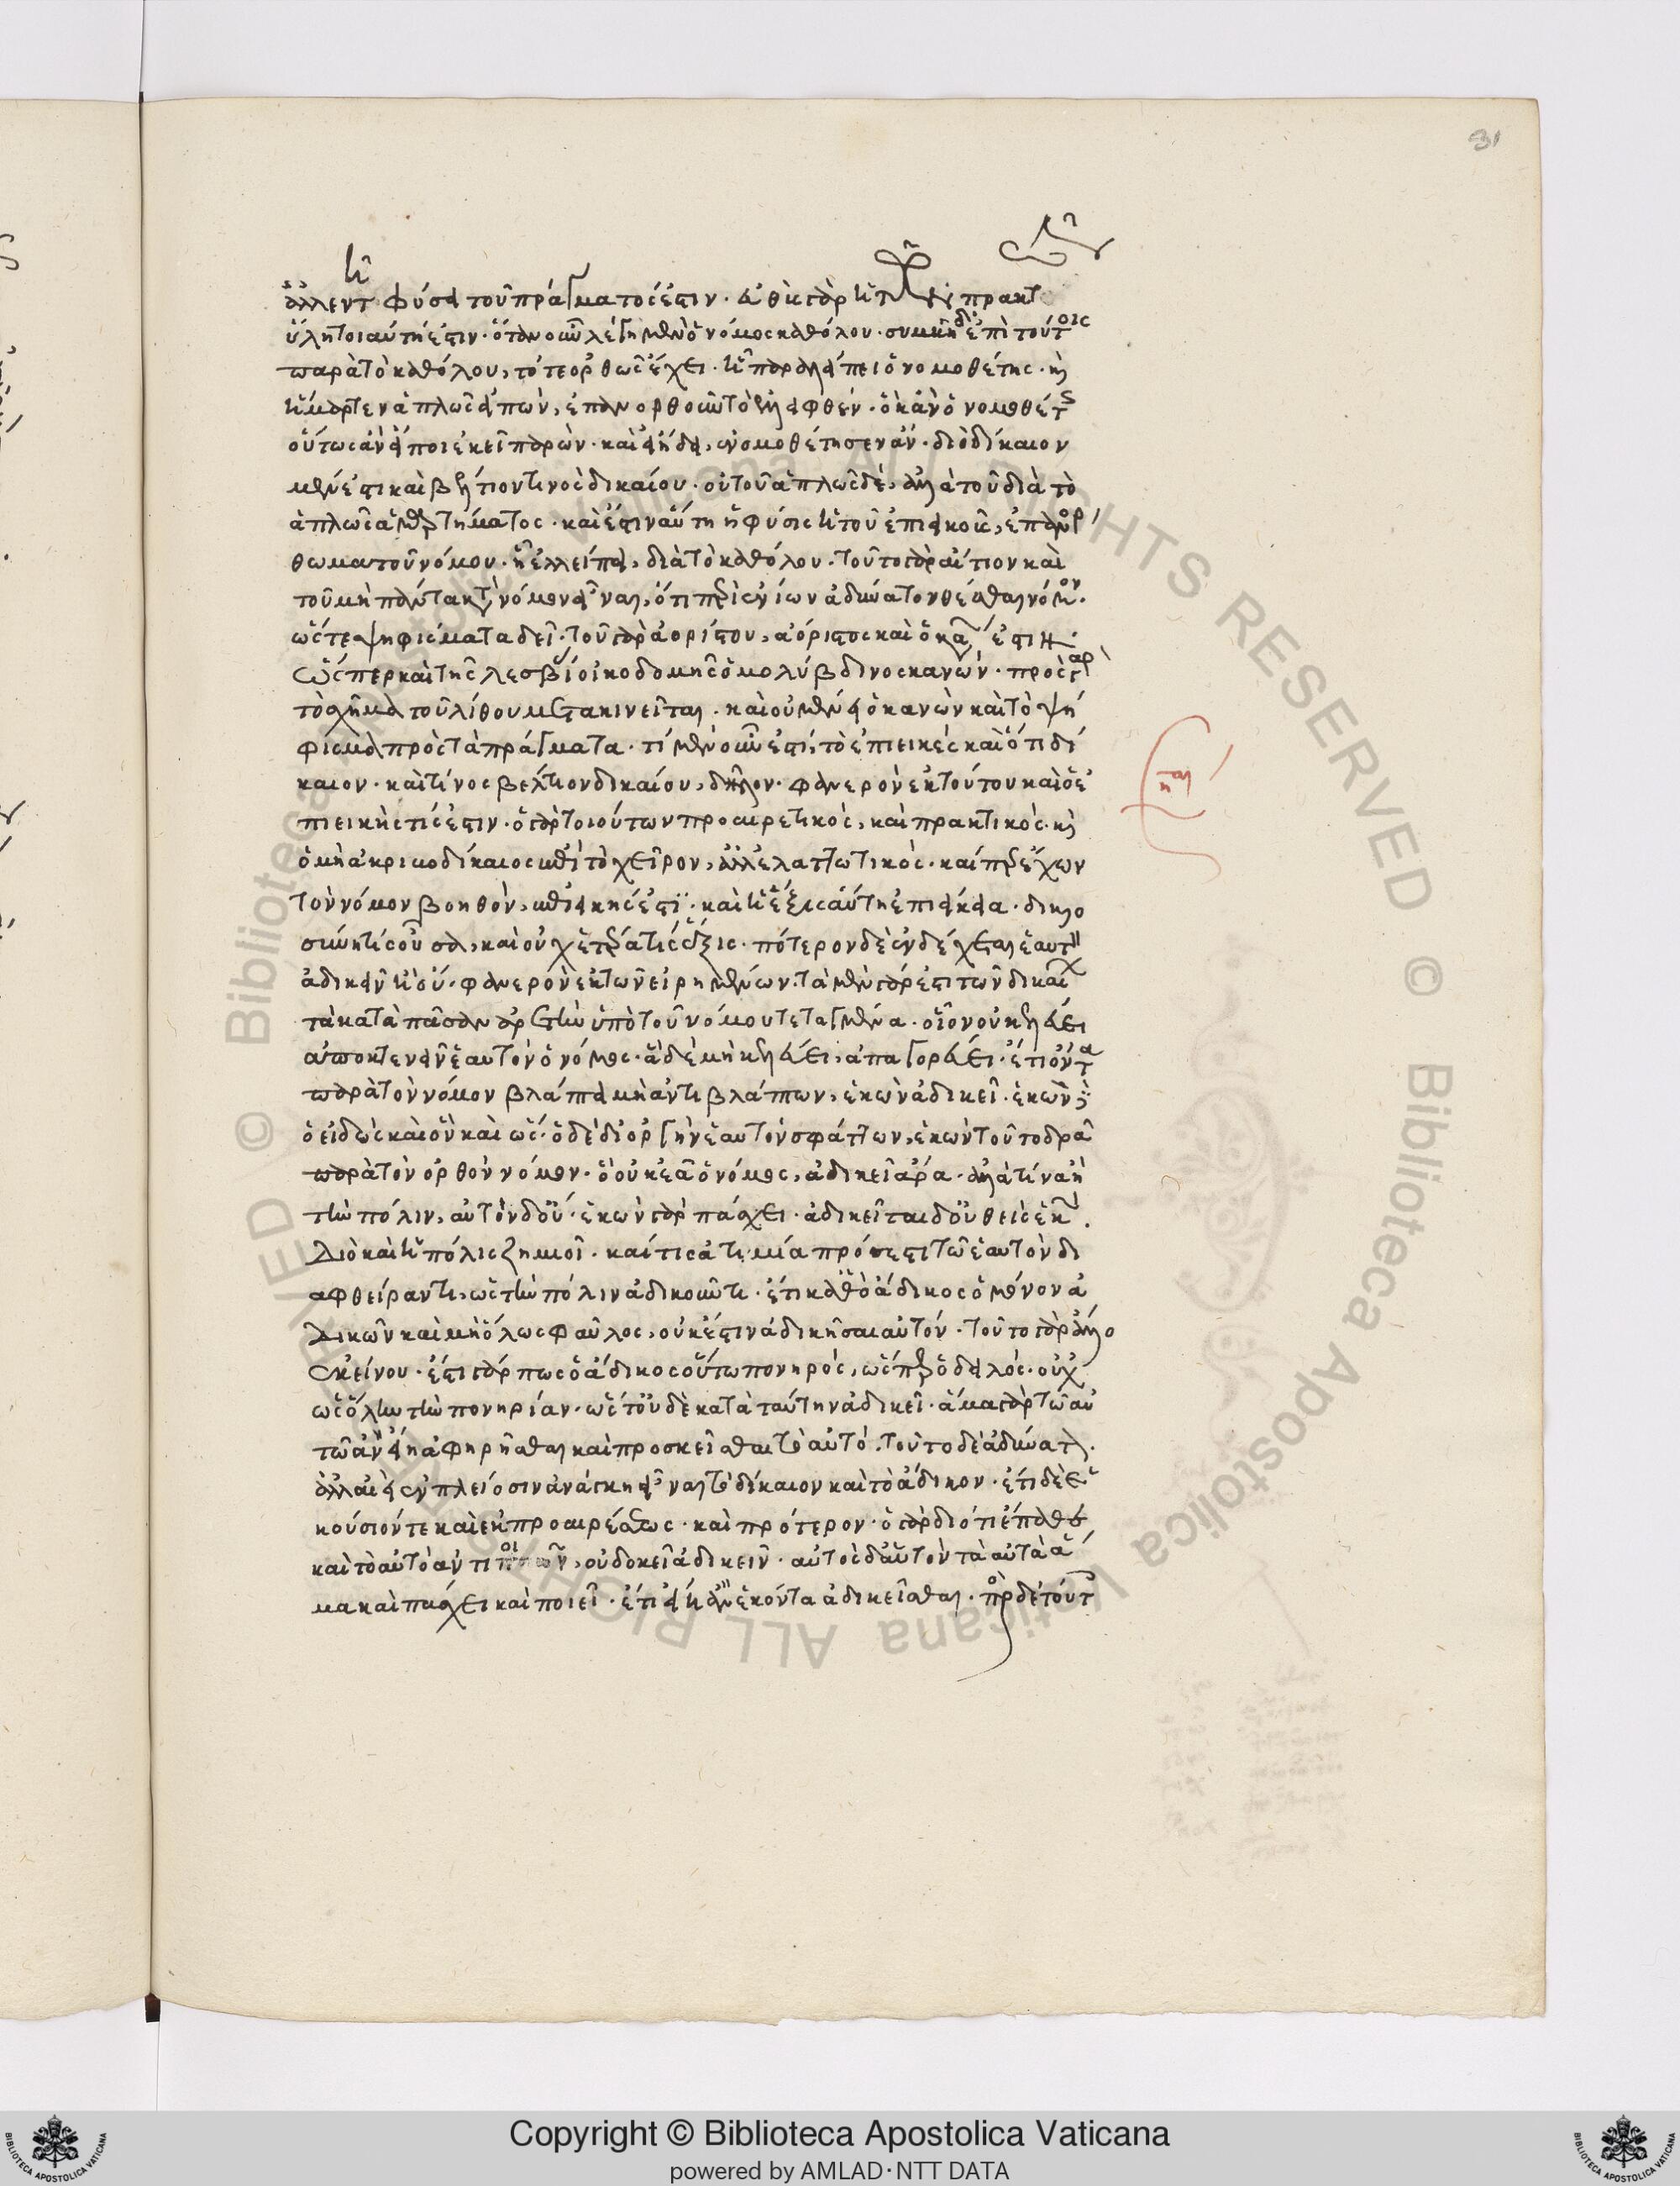 31
ἀλλ' ἐν τῇ φύσει τοῦ πράγματός ἐστιν. εὐθὺς γὰρ ἡ τῶν πρακτῶν
ὕλη τοιαύτη ἐστίν. ὅταν οὖν λέγῃ μὲν ὁ νόμος καθόλου. συμβῇ δ' ἐπὶ τούτοις
παρὰ τὸ καθόλου, τότε ὀρθῶς ἔχει. ᾗ παραλείπει ὁ νομοθέτης. καὶ
ἥμαρτεν ἁπλῶς εἰπών, ἐπανορθοῦν τὸ ἐλλειφθέν. ὃ κἂν ὁ νομοθέτης
οὕτως ἂν εἴποι ἐκεῖ παρών. καὶ εἰ ᾔδει, ἐνομοθέτησεν ἄν. διὸ δίκαιον
μέν ἐστι καὶ βέλτιόν τινος δικαίου. οὐ τοῦ ἁπλῶς δέ, ἀλλὰ τοῦ διὰ τὸ
ἁπλῶς ἁμαρτήματος. καὶ ἔστιν αὕτη ἡ φύσις ἡ τοῦ ἐπιεικοῦς, ἐπανόρ
θωμα τοῦ νόμου. ᾗ ἐλλείπει, διὰ τὸ καθόλου. τοῦτο γὰρ αἴτιον καὶ
τοῦ μὴ πάντα κατὰ νόμον εἶναι, ὅτι περὶ ἐνίων ἀδύνατον θέσθαι νόμον.
ὥστε ψηφίσματα δεῖ. τοῦ γὰρ ἀορίστου, ἀόριστος καὶ ὁ κανών ἐστι
ὥσπερ καὶ τῆς λεσβίου οἰκοδομῆς ὁ μολύβδινος κανών. πρὸς γὰρ
τὸ σχῆμα τοῦ λίθου μετακινεῖται. καὶ οὐ μένει ὁ κανὼν καὶ τὸ ψή
φισμα πρὸς τὰ πράγματα. τί μὲν οὖν ἐστι, τὸ ἐπιεικές καὶ ὅτι δί
καιον. καὶ τίνος βέλτιον δικαίου, δῆλον. φανερὸν ἐκ τούτου καὶ ὁ ἐ
πιεικὴς τίς ἐστιν. ὁ γὰρ τοιούτων προαιρετικός, καὶ πρακτικός. καὶ
ὁ μὴ ἀκριβοδίκαιος ἐπὶ τὸ χεῖρον, ἀλλ' ἐλαττωτικός. καίπερ ἔχων
τὸν νόμον βοηθόν, ἐπιεικής ἐστι. καὶ ἡ ἕξις αὕτη ἐπιείκεια. δικαιο
σύνη τίς οὖσα, καὶ οὐχ ἑτέρα τίς ἕξις. πότερον δὲ ἐνδέχεται ἑαυτὸν
ἀδικεῖν ἢ οὔ. φανερὸν ἐκ τῶν εἰρημένων. τὰ μὲν γάρ ἐστι τῶν δικαίων
τὰ κατὰ πᾶσαν ἀρετὴν ὑπὸ τοῦ νόμου τεταγμένα. οἷον οὐ κελεύει
ἀποκτεννεῖν ἑαυτὸν ὁ νόμος. ἃ δὲ μὴ κελεύει, ἀπαγορεύει. ἔτι ὅταν
παρὰ τὸν νόμον βλάπτει μὴ ἀντιβλάπτων, ἑκὼν ἀδικεῖ. ἑκὼν δὲ
ὁ εἰδὼς καὶ ὃν καὶ ὥς. ὁ δὲ δι' ὀργὴν ἑαυτὸν σφάττων, ἑκὼν τοῦτο δρᾷ
παρὰ τὸν ὀρθὸν νόμον. ὃ οὐκ ἐᾷ ὁ νόμος, ἀδικεῖ ἄρα. ἀλλὰ τίνα ἢ
τὴν πόλιν, αὐτὸν δ' οὔ. ἑκὼν γὰρ πάσχει. ἀδικεῖται δ' οὐθεὶς ἑκών.
Διὸ καὶ ἡ πόλις ζημιοῖ. καί τις ἀτιμία πρόσεστι τῷ ἑαυτὸν δι
αφθείραντι, ὡς τὴν πόλιν ἀδικοῦντι. ἔτι καθ' ὃ ἄδικος ὁ μόνον ἀ
δικῶν καὶ μὴ ὅλως φαῦλος, οὐκ ἔστιν ἀδικῆσαι αὐτόν. τοῦτο γὰρ ἄλλο
ἐκείνου. ἔστι γάρ πως ὁ ἄδικος οὕτω πονηρός, ὥσπερ ὁ δειλός. οὐχ
ὡς ὅλην τὴν πονηρίαν. ὥστ' οὐδὲ κατὰ ταύτην ἀδικεῖ. ἅμα γὰρ τῷ αὐ
τῷ ἂν εἴη ἀφῃρῆσθαι καὶ προσκεῖσθαι τὸ αὐτό. τοῦτο δὲ ἀδύνατον.
ἀλλ' αἰεὶ ἐν πλείοσιν ἀνάγκη εἶναι τὸ δίκαιον καὶ τὸ ἄδικον. ἔτι δὲ ἑ
κούσιόν τε καὶ ἐκ προαιρέσεως. καὶ πρότερον. ὁ γὰρ διότι ἔπαθε
καὶ τὸ αὐτὸ ἀντιποιῶν, οὐ δοκεῖ ἀδικεῖν. αὐτὸς δ' αὑτὸν τὰ αὐτὰ ἅ
μα καὶ πάσχει καὶ ποιεῖ. ἔτι εἴη ἂν ἑκόντα ἀδικεῖσθαι. πρὸς δὲ τούτοις
Copyright © Biblioteca Apostolica Vaticana
powered by AMLAD·NTT DATA